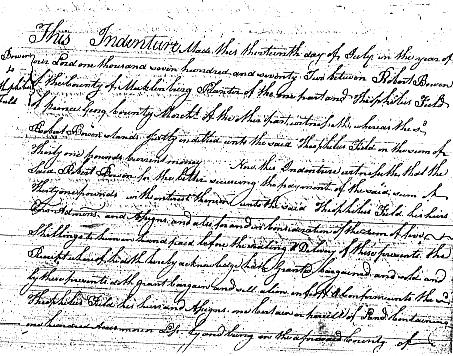 This Indenture Made this thirteenth day of July in the year of
our Lord one thousand seven hundred and seventy Two between Robert Bowen
Bowen
to
Theophilus
Field
of the County of Mecklenburg Planter of the one part and Theophilus Field
of prince Georg County Mercht of the other part witnesseth, whereas the sd
Robert Bowen stands justly indebted unto the said Theophilus Field in the sum of
Thirty one pounds current money Now this Indenture witnesseth that the
said Robert Bowen for the better securing the payment of the said sum of
Thirty one pounds with interest thereon unto the said Theophilus Field his heirs
and Assigns, and also for and in consideration of the sum of five
Shillings to him in hand paid before the sealing & Delivery of these presents the
Receipt whereof he doth hereby acknowledge hath Granted bargained and sold and
by these presents doth grant bargain and sell alien enfeoff & confirm unto the sd
Theophilus Field his heirs and Assigns one certain or parcel of Land containing
one hundred Acres more or Less lying and being in the aforesaid County of